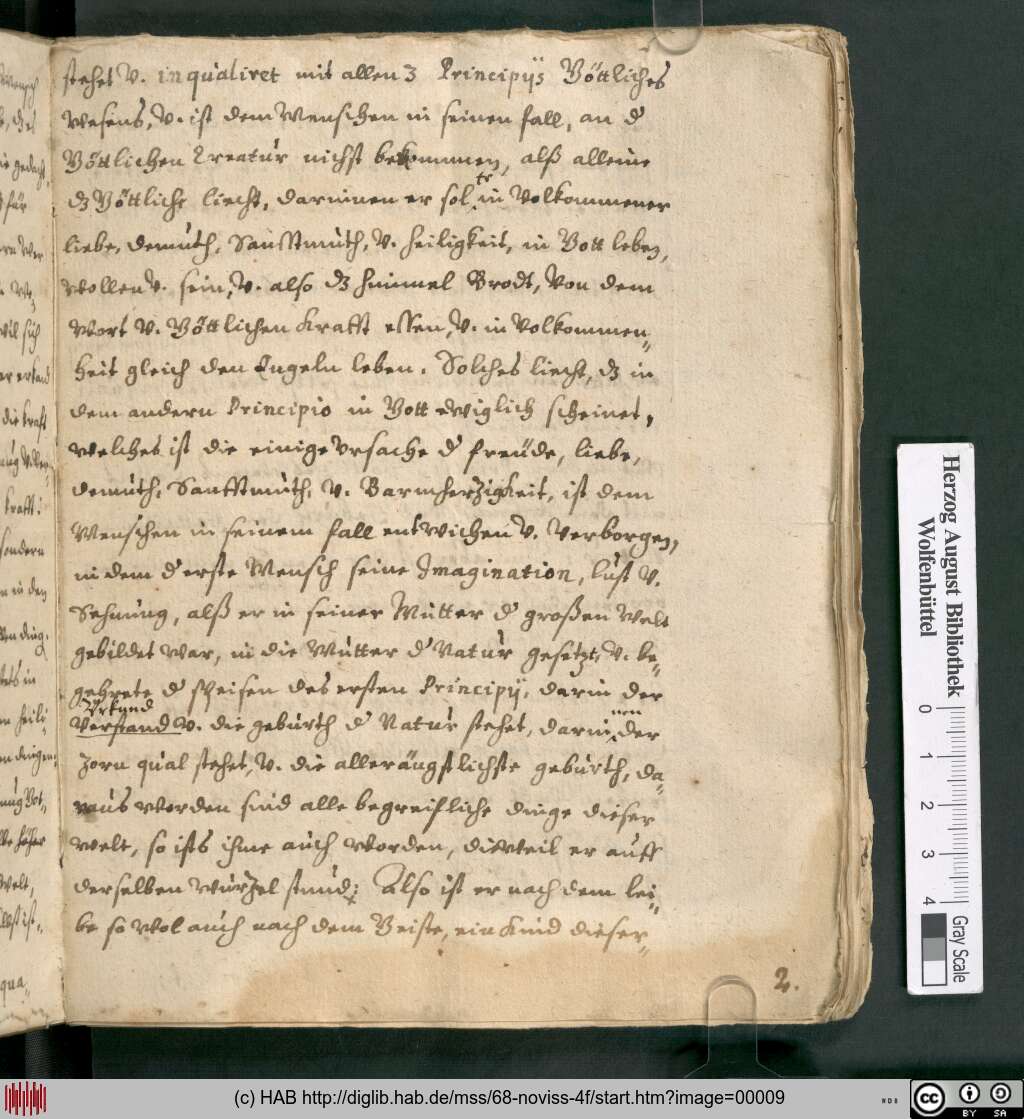 stehet v. inqualiret mit allen 3 Principijs Göttliches
wesens, v. ist dem Menschen in seinen fall, an d
Göttlichen Creatur nichst bekommen, alß alleine
dz Göttliche liecht, darinnen er sol te in volkommener
liebe, demuth, Sanfftmuth, v. heiligkeit, in Gott leben,
wollen v. sein, v. also dz himmel Brodt, von dem
wort v. Göttlichen krafft essen, v. in volkommen„
heit gleich den Engeln leben. Solches liecht, dz in
dem andern Principio in Gott ewiglich scheinet,
welches ist die einige vrsache d freüde, liebe,
demuth, Sanfftmuth, v. Barmherzigkeit, ist dem
Menschen in seinem fall entwichen v. verborgen,
in dem d erste Mensch seine Imagination, lust v.
Sehnung, alß er in seiner Mutter d großen welt
gebildet war, in die Mutter d Natur gesetzt, v. be„
gehrete d speisen des ersten Principij, darin der
Vrkund
verstand v. die geburth d Natur stehet, darin nen der
zorn qual stehet, v. die allerängstlichste geburth, da„
raus worden sind alle begreifliche dinge dieser
welt, so ists ihme auch worden, dieweil er auff
derselben wurzel stund; Also ist er nach dem lei„
be so wol auch nach dem Geiste, ein kind dieser„
2.
Herzog August Bibliothek
Wolfenbüttel
0 1 2 3 4
Gray Scale
(c) HAB http://diglib.hab.de/mss/68-noviss-4f/start.htm?image=00009
cc BY SA